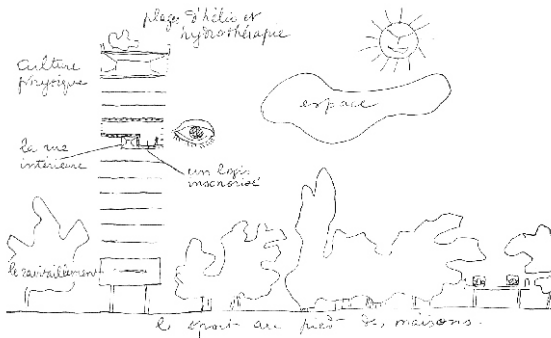 plage d'hélio et
hydrothérapie
culture
physique
espace
la rue
intérieure
un logis
insonorisé
le ravitaillement
le sport au pied des maisons.